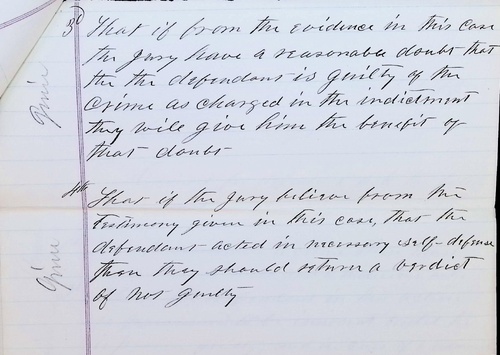 3d That if from the evidence in this case
the Jury have a reasonable doubt that
the the defendant is guilty of the
Crime as charged in the indictment
they will give him the benefit of
that doubt
Given
4th That if the Jury believe from the
testimony given in this case, that the
defendant acted in necessary self-defense
then they should return a verdict
of not guilty
Given